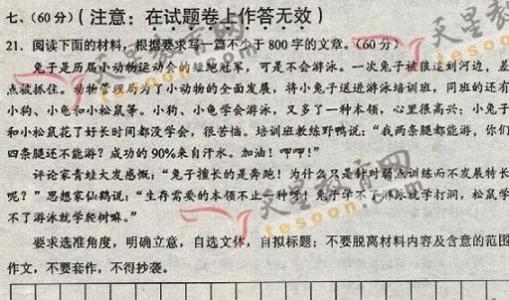 七、(60分)(注意：在试题卷上作答无效)
21. 阅读下面的材料，根据要求写一篇不少于800字的文章。(60分)
兔子是历届小动物运动会的短跑冠军，可是不会游泳。一次兔子被狼追到河边，差
点被抓住。动物管理局为了小动物的全面发展，将小兔子送进游泳培训班，同班的还有
小狗、小龟和小松鼠等。小狗、小龟学会游泳，又多了一种本领，心里很高兴；小兔子
和小松鼠花了好长时间都没学会，很苦恼。培训班教练野鸭说：“我两条腿都能游，你们
四条腿还不能游？成功的90%来自汗水。加油！呷呷!”
评论家青蛙大发感慨：“兔子擅长的是奔跑！为什么只是针对弱点训练而不发展特长
呢？”思想家仙鹤说：“生存需要的本领不止一种呀！兔子学不了游泳就学打洞，松鼠学
不了游泳就学爬树嘛。”
要求选准角度，明确立意，自选文体，自拟标题；不要脱离材料内容及含意的范围
作文，不要套作，不得抄袭。
天星教育网
tesoon.com
天星教育网
tesoon.com
天星教
tesoon